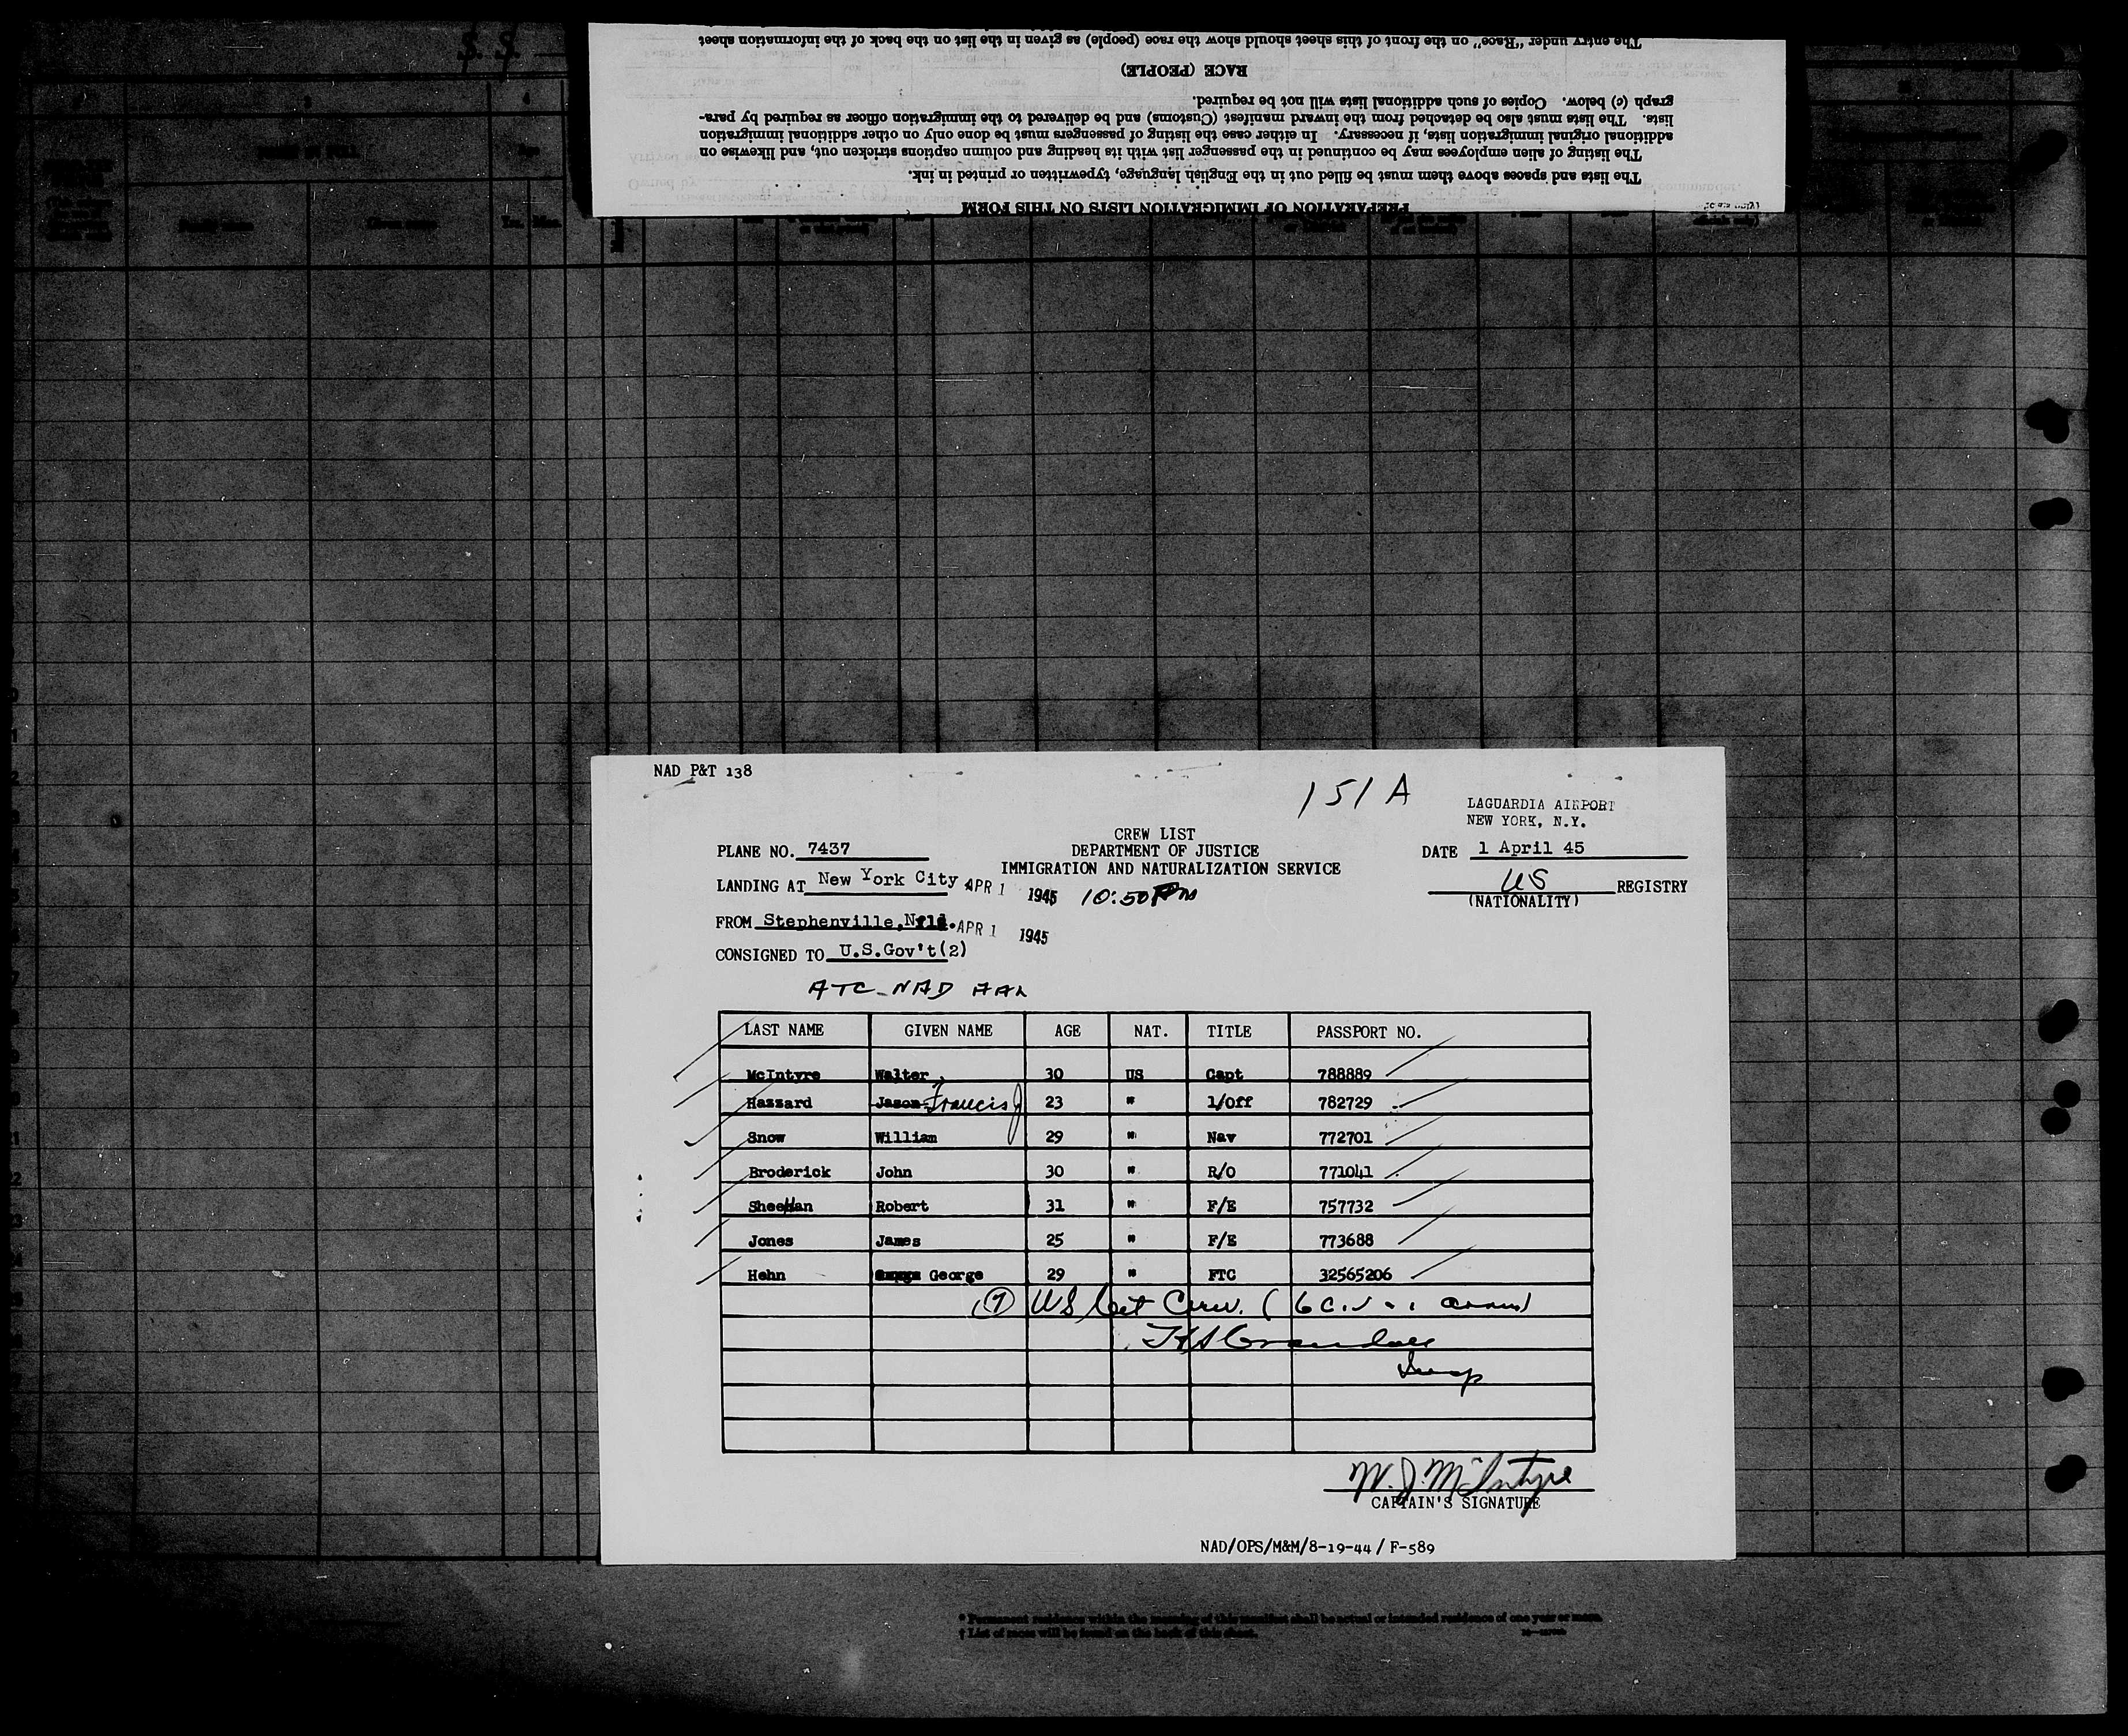 S. S.
The entry under "Race" on the front of this sheet should show the race (people) as given in the list on the back of the information sheet
RACE (PEOPLE)
graph (c) below. Copies of such additional lists will not be required.
lists. The lists must also be detached from the inward manifest (Customs) and be delivered to the immigration officer as required by para-
additional original immigration lists, if necessary. In either case the listing of passengers must be done only on other additional immigration
The listing of alien employees may be continued in the passenger list with its heading and column captions stricken out, and likewise on
The lists and spaces above them must be filled out in the English language, typewritten or printed in ink.
PREPARATION OF IMMIGRATION LISTS ON THIS FORM
3 4
Family name Given name Yrs. Mos.
NAD P&T 138
151 A
LAGUARDIA AIRPORT
NEW YORK, N.Y.
CREW LIST
PLANE NO. 7437 DEPARTMENT OF JUSTICE DATE 1 April 45
IMMIGRATION AND NATURALIZATION SERVICE
LANDING AT New York City APR 1 1945 10:50 PM US REGISTRY
(NATIONALITY)
FROM Stephenville, Nfld. APR 1 1945
CONSIGNED TO U.S.Gov't(2)
ATC-NAD AAL
LAST NAME GIVEN NAME AGE NAT. TITLE PASSPORT NO.
McIntyre Walter 30 US Capt 788889
Hazzard Jason Francis J 23 " 1/Off 782729
Snow William 29 " Nav 772701
Broderick John 30 " R/O 771041
Sheehan Robert 31 " F/E 757732
Jones James 25 " F/E 773688
Hehn George 29 " FTC 32565206
(7) US Cit Crew. (6
Insp
W. J. McIntyre
CAPTAIN'S SIGNATURE
NAD/OPS/M&M/8-19-44 / F-589
* Permanent residence within the meaning of this manifest shall be actual or intended residence of one year or more.
† List of races will be found on the back of this sheet.